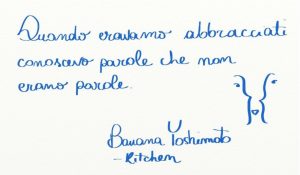 Quando eravamo abbracciati
conoscevo parole che non
erano parole.
Banana Yoshimoto
- Kitchen